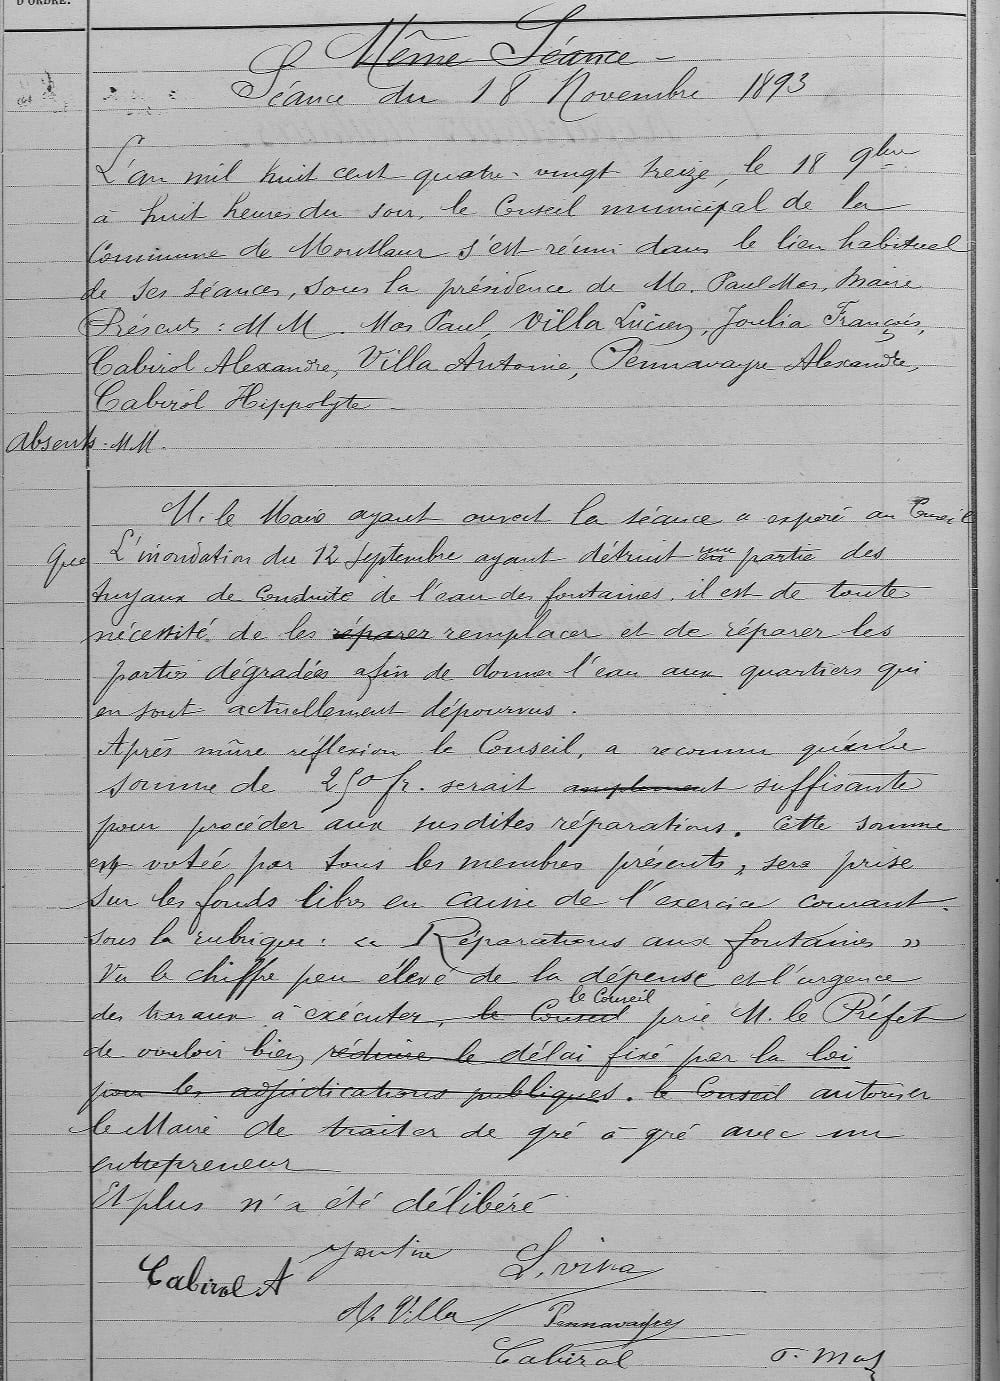 D'ORDRE.
Même Séance -
Séance du 18 Novembre 1893
L'an mil huit cent quatre-vingt treize, le 18 9bre
à huit heures du soir, le Conseil municipal de la
Commune de Montlaur s'est réuni dans le lieu habituel
de ses séances, sous la présidence de M. Paul Mas, Maire
Présents : MM. Mas Paul, Villa Lucien, Joulia François,
Cabirol Alexandre, Villa Antoine, Pennavayre Alexandre,
Cabirol Hippolyte -
Absents. MM.
M. le Maire ayant ouvert la séance a exposé au Conseil
que L'inondation du 12 Septembre ayant détruit une partie des
tuyaux de conduite de l'eau des fontaines, il est de toute
nécessité de les réparer remplacer et de réparer les
parties dégradées afin de donner l'eau aux quartiers qui
en sont actuellement dépourvus.
Après mûre réflexion le Conseil, a reconnu qu'une
somme de 250 fr. serait amplement suffisante
pour procéder aux susdites réparations. Cette somme
est votée par tous les membres présents, sera prise
sur les fonds libres en caisse de l'exercice courant.
sous la rubrique : « Réparations aux fontaines »
Vu le chiffre peu élevé de la dépense et l'urgence
des travaux à exécuter, le Conseil le Conseil prie M. le Préfet
de vouloir bien réduire le délai fixé par la loi
pour les adjudications publiques. le Conseil autoriser
le Maire de traiter de gré à gré avec un
entrepreneur
Et plus n'a été délibéré
L. Villa
Cabirol A
At. Villa Pennavayre
Cabirol P. Mas